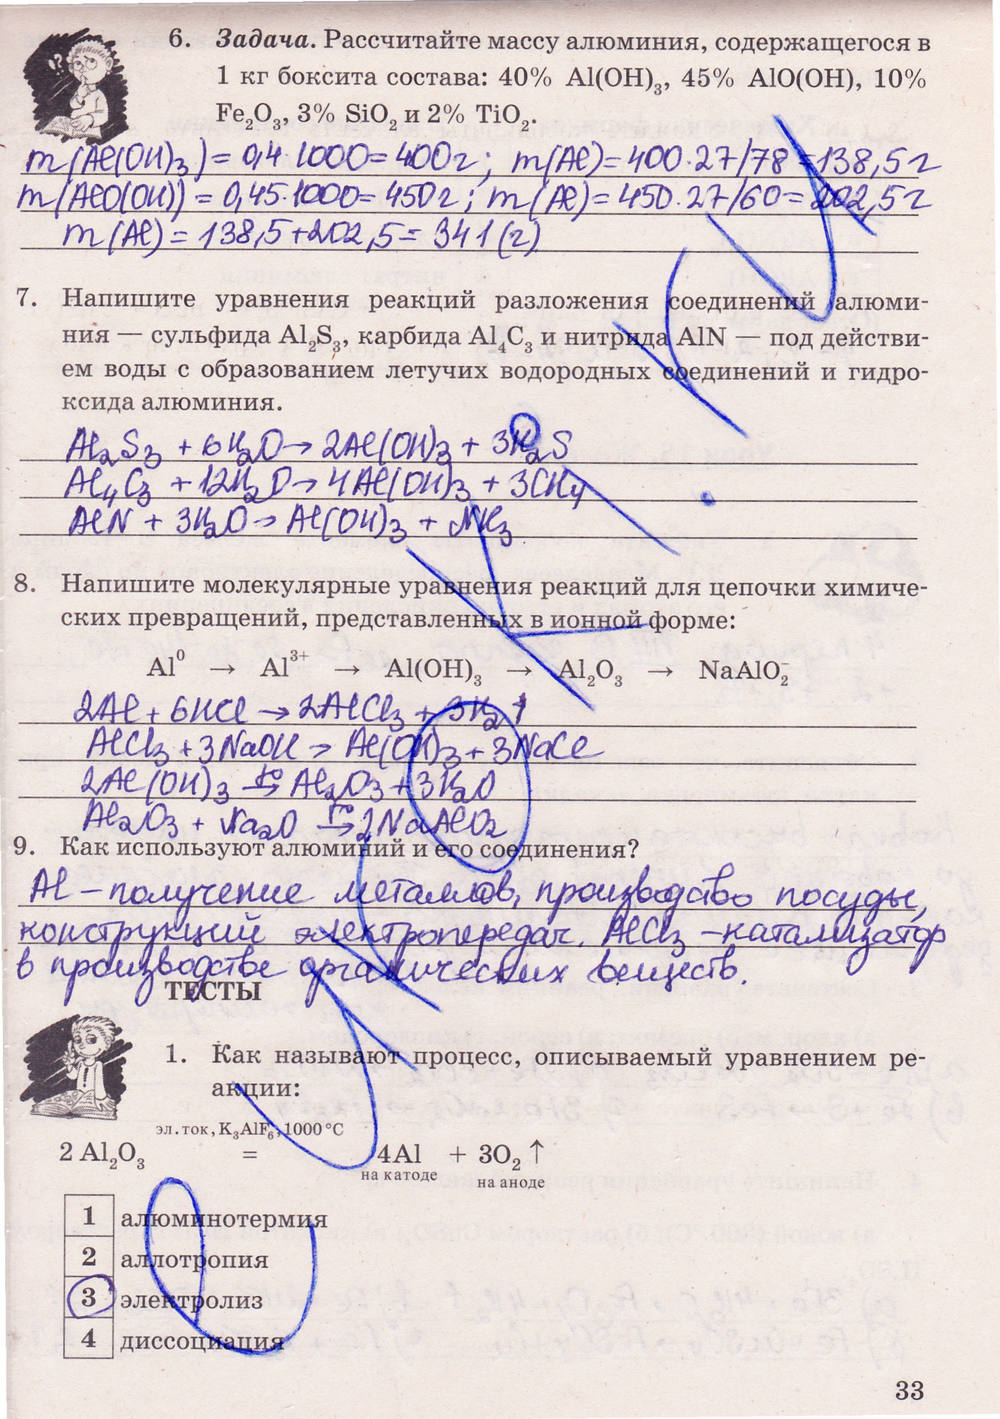 6. Задача. Рассчитайте массу алюминия, содержащегося в
1 кг боксита состава: 40% Al(OH)₃, 45% AlO(OH), 10%
Fe₂O₃, 3% SiO₂ и 2% TiO₂.
m(Al(OH)₃) = 0,4·1000 = 400г; m(Al) = 400·27/78 = 138,5г
m(AlO(OH)) = 0,45·1000 = 450г; m(Al) = 450·27/60 = 202,5г
m(Al) = 138,5+202,5 = 341(г)
7. Напишите уравнения реакций разложения соединений алюми-
ния — сульфида Al₂S₃, карбида Al₄C₃ и нитрида AlN — под действи-
ем воды с образованием летучих водородных соединений и гидро-
ксида алюминия.
Al₂S₃ + 6H₂O → 2Al(OH)₃ + 3H₂S
Al₄C₃ + 12H₂O → 4Al(OH)₃ + 3CH₄
AlN + 3H₂O → Al(OH)₃ + NH₃
8. Напишите молекулярные уравнения реакций для цепочки химиче-
ских превращений, представленных в ионной форме:
Al⁰ → Al³⁺ → Al(OH)₃ → Al₂O₃ → NaAlO₂⁻
2Al + 6HCl → 2AlCl₃ + 3H₂↑
AlCl₃ + 3NaOH → Al(OH)₃ + 3NaCl
2Al(OH)₃ t°→ Al₂O₃ + 3H₂O
Al₂O₃ + Na₂O t°→ 2NaAlO₂
9. Как используют алюминий и его соединения?
Al – получение металлов, производство посуды,
конструкций электропередач. AlCl₃ – катализатор
в производстве органических веществ.
ТЕСТЫ
1. Как называют процесс, описываемый уравнением ре-
акции:
эл.ток, K₃AlF₆, 1000°C
2 Al₂O₃ = 4Al + 3O₂↑
на катоде на аноде
1 алюминотермия
2 аллотропия
3 электролиз
4 диссоциация
33